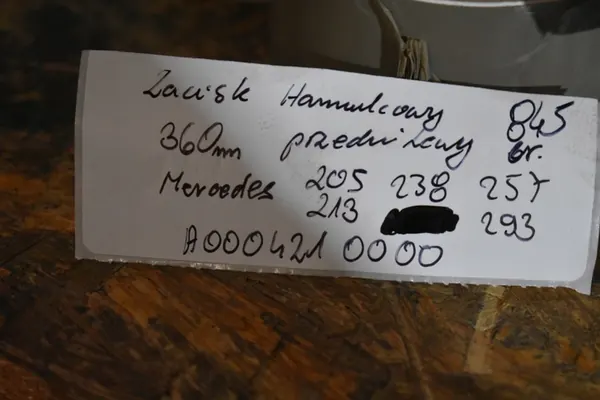 Zacisk Hamulcowy 845
360mm przedni lewy br.
Mercedes 205 238 257
213 293
A000421 0000